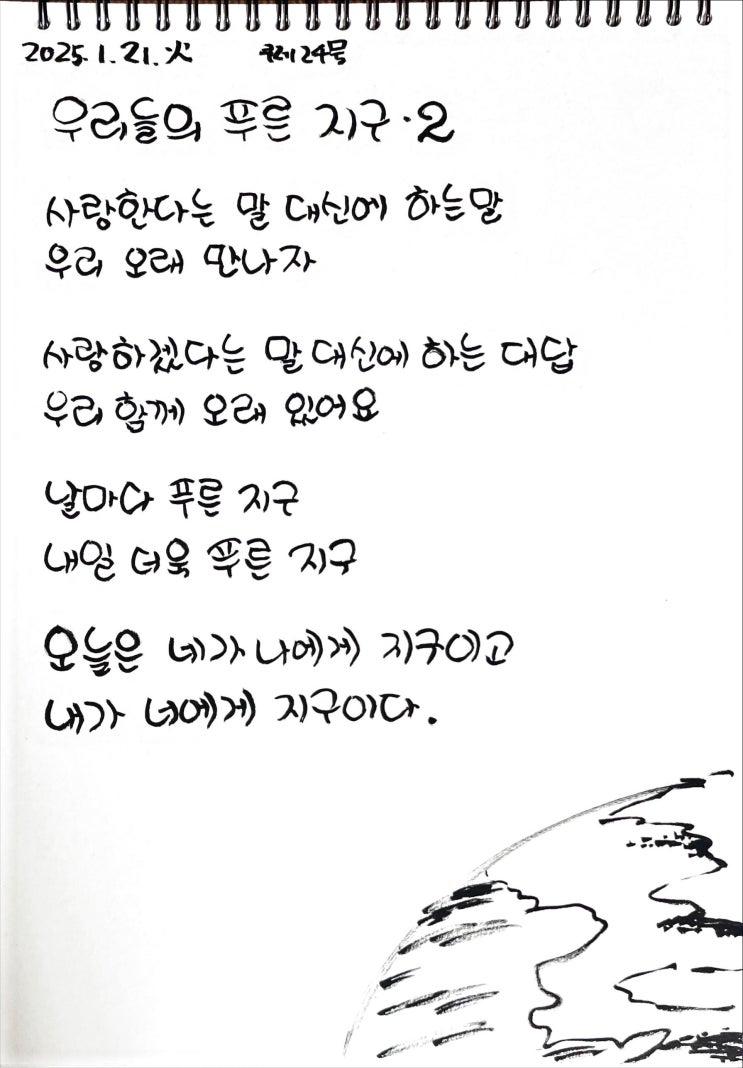 2025. 1. 21. 火 제24号
우리들의 푸른 지구·2
사랑한다는 말 대신에 하는 말
우리 오래 만나자
사랑하겠다는 말 대신에 하는 대답
우리 함께 오래 있어요
날마다 푸른 지구
내일 더욱 푸른 지구
오늘은 네가 나에게 지구이고
내가 너에게 지구이다.